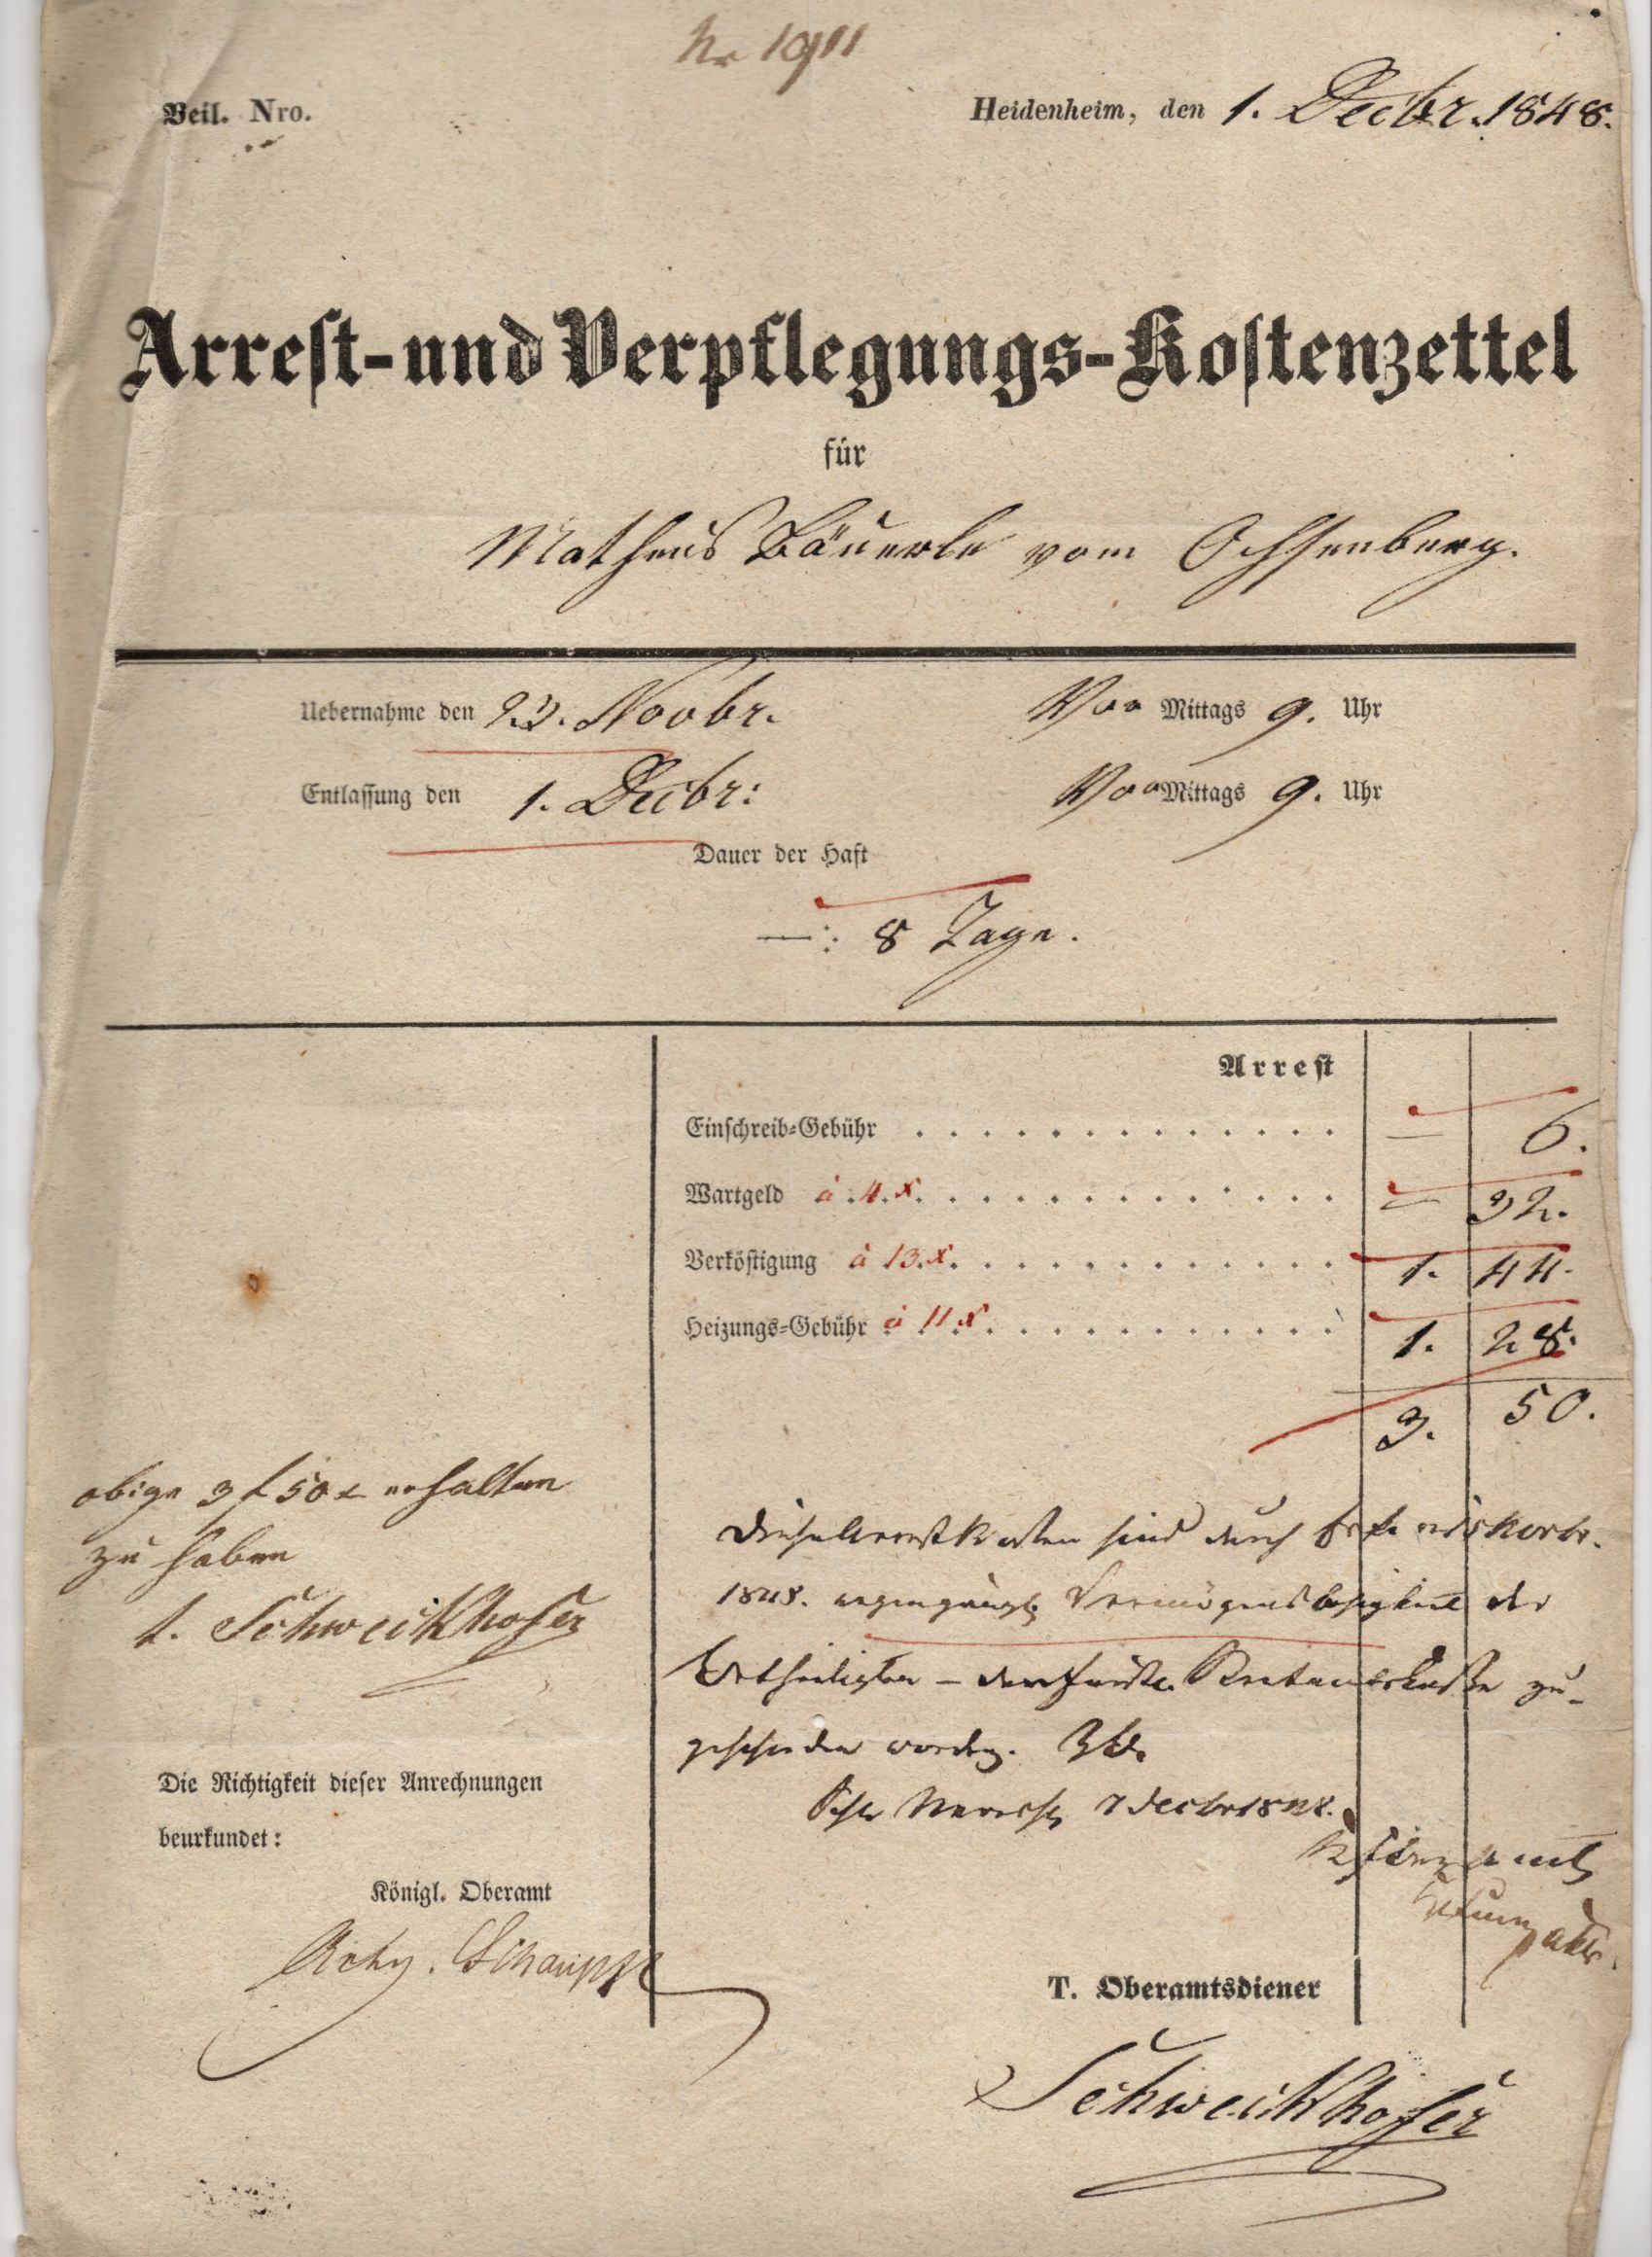 Nr 1911
Beil. Nro.
Heidenheim, den 1. Decbr. 1848.
Arrest- und Verpflegungs-Kostenzettel
für
Matheus Bäuerle vom Ochsenberg.
Uebernahme den 23. Novbr. Vor Mittags 9. Uhr
Entlassung den 1. Decbr: Vor Mittags 9. Uhr
Dauer der Haft
—: 8 Tage.
Arrest
Einschreib-Gebühr — 6.
Wartgeld à 4. x. — 32.
Verköstigung à 13. x. 1. 44.
Heizungs-Gebühr à 11 x 1. 28.
3. 50.
obige 3 f 50 x erhalten
zu haben
t. Schweickhofer
Diese Arrestkosten sind durch
1848. Vermögenslosigkeit der
Betheiligten – der Rentamtskasse zu-
geschieden worden.
7 Decbr 1848.
Die Richtigkeit dieser Anrechnungen
beurkundet:
Königl. Oberamt
Schaupp
T. Oberamtsdiener
Schweickhofer